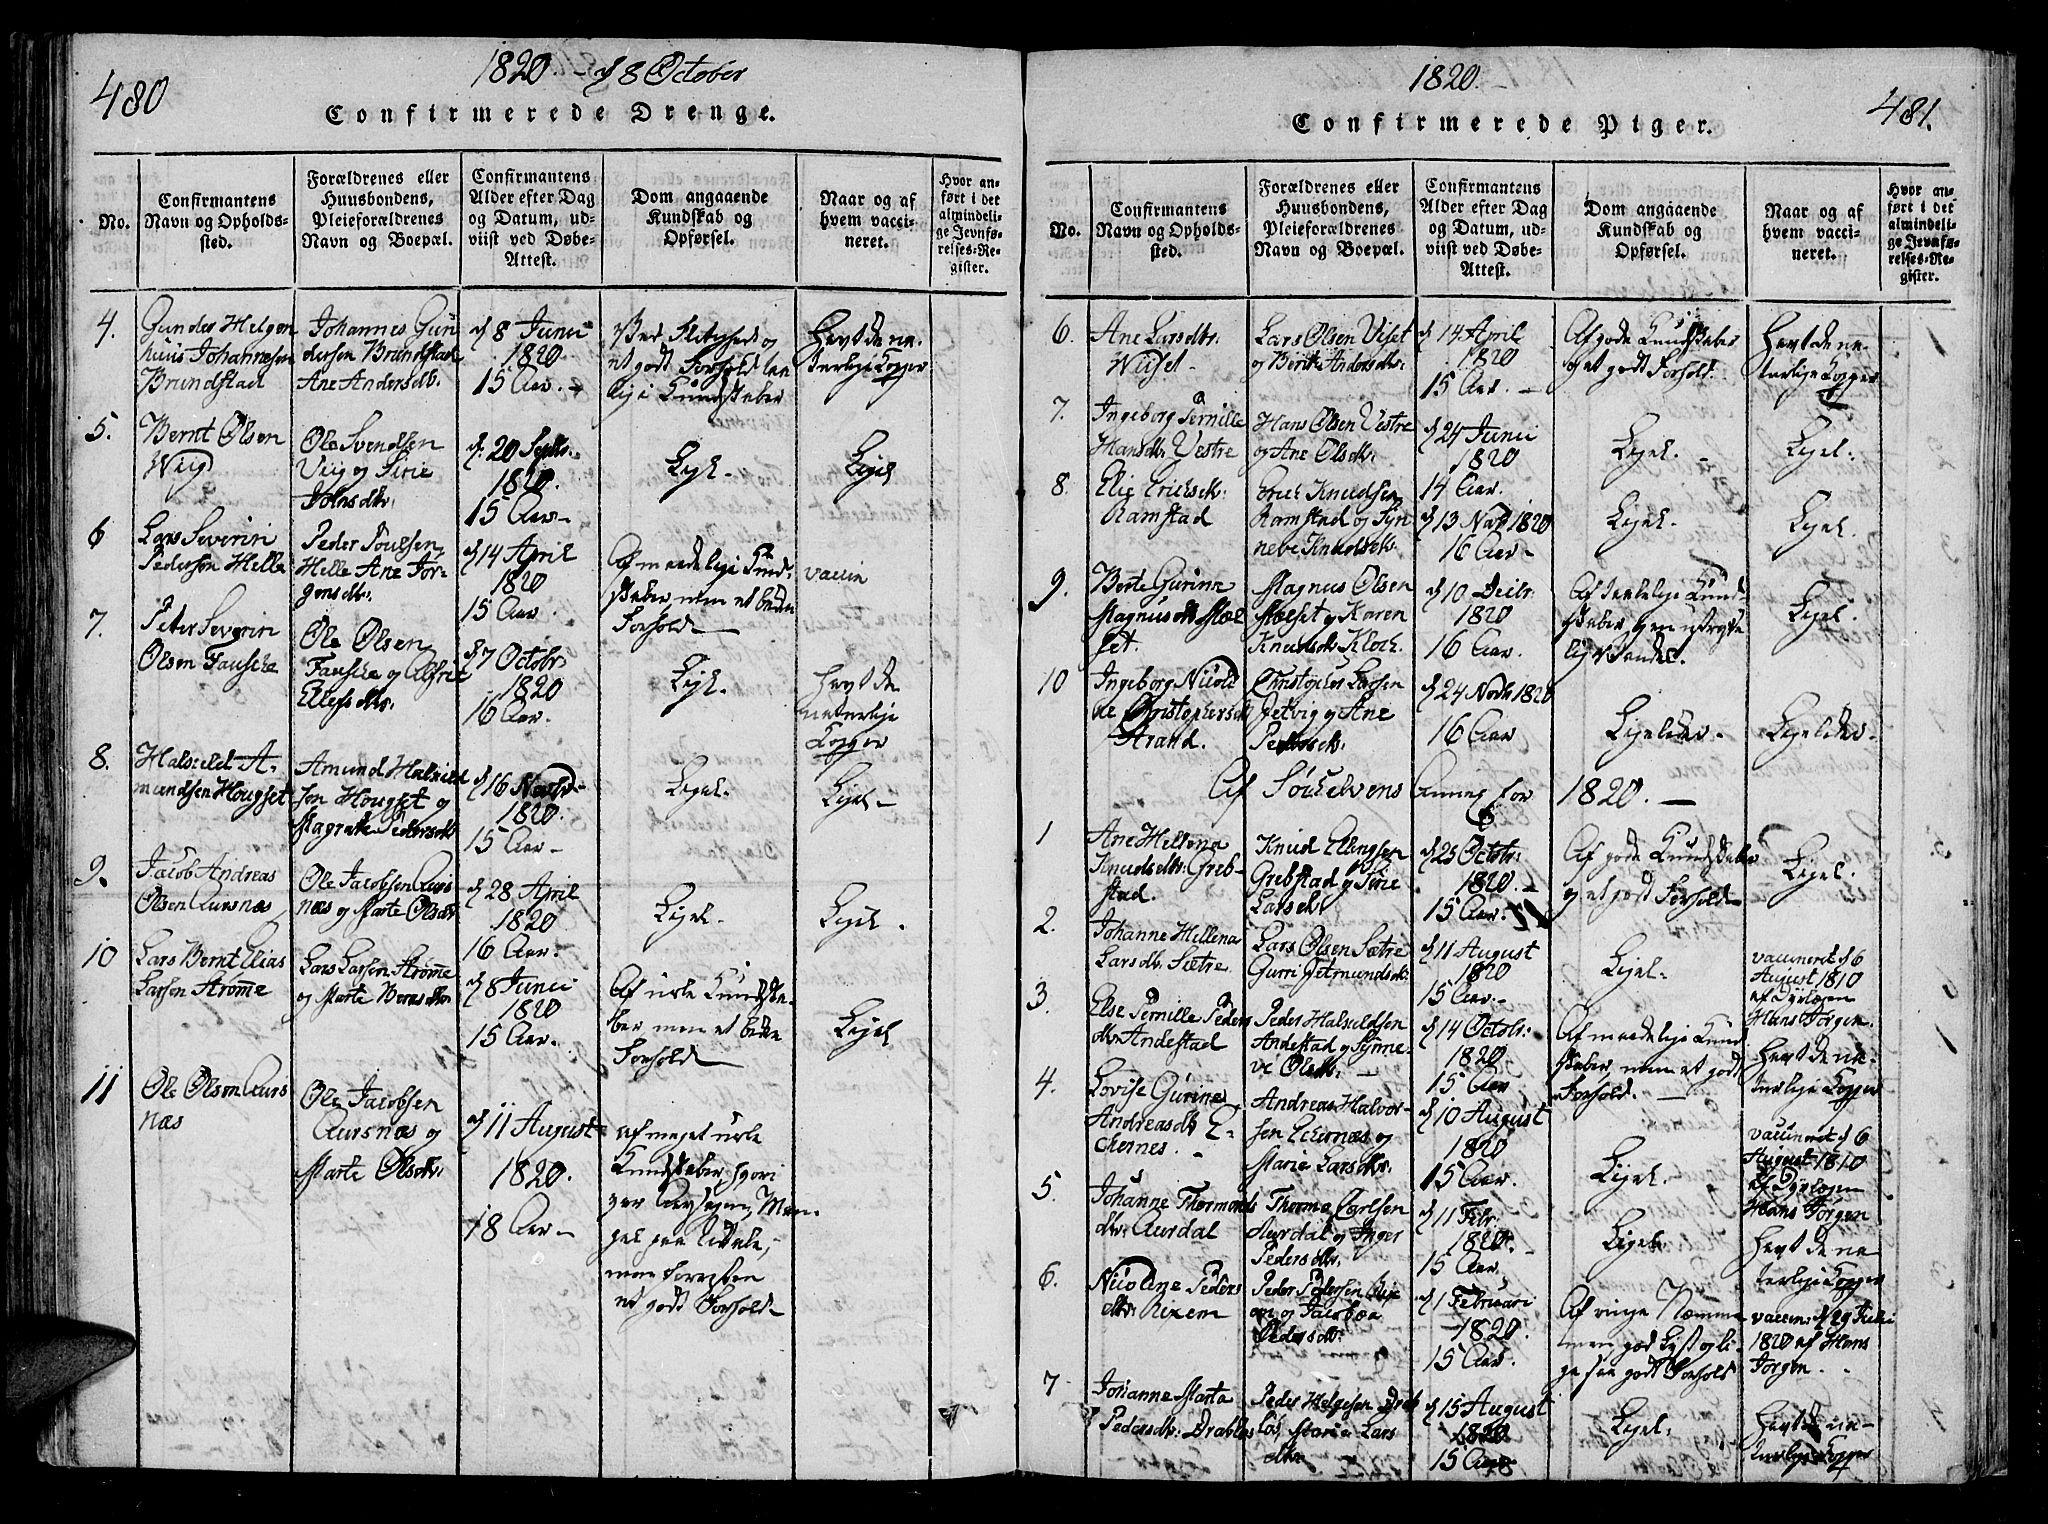 480
1820. d 8 October
Confirmerede Drenge.
No.
Confirmantens
Navn og Opholds-
sted.
Forældrenes eller
Huusbondens,
Pleieforældrenes
Navn og Boepæl.
Confirmantens
Alder efter Dag
og Datum, ud-
viist ved Døbe-
Attest.
Dom angaaende
Kundskab og
Opførsel.
Naar og af
hvem vacci-
neret.
Hvor an-
ført i det
almindeli-
ge Jevnfø-
relses-Re-
gister.
4.
Gunder Helgen
Johannesen
Brundstad
Johannes Gun
dersen Brundstad
Ane Andersdtr.
d 8 Junii
1820
15 Aar.
et godt Forhold
Kundskaber
Havt de na-
turlige Kopper
5.
Bernt Olsen
Wiig
Ole Svendsen
Viig og Sirie
Johnsdtr.
d. 20 Septbr.
1820.
15 Aar
Ligel.
Ligel
6
Lars Severin
Pedersen Helle
Peder Poulsen
Helle Ane Jør-
gensdtr.
d 14 April
1820
15 Aar.
Af maadelige Kund-
skaber, men et
Forhold
vaccin
7.
Peter Severin
Olsen Fauske
Ole Olsen
Fauske og
Ellefsdtr.
d 7 Octobr.
1820
16 Aar.
Ligel.
Havt de
naturlige
Kopper
8.
Halsteld A-
mundsen Hougset
Amund Halsteld
sen Hougset og
Magrete Pedersdtr
d 16 Novbr.
1820.
15 Aar
Ligel.
Ligel
9.
Jacob Andreas
Olsen Aursnæs
Ole Jacobsen Aurs
næs og Marte Olsdtr.
d 28 April
1820
16 Aar.
Ligel.
Ligel.
10
Lars Bernt Elias
Larsen Strømme
Lars Larsen Strømme
og Marte Bernsdtr
d 8 Junii
1820
15 Aar.
Af Kundska-
ber men et
Forhold
Ligel
11
Ole Olsen Aurs
næs
Ole Jacobsen
Aursnæs og
Marte Olsdtr.
d 11 August
1820.
18 Aar
af meget
Kundskaber, hvori
Man-
gel paa
men forresten
et godt Forhold
1820.
481.
Confirmerede Piger.
No.
Confirmantens
Navn og Opholds-
sted.
Forældrenes eller
Huusbondens,
Pleieforældrenes
Navn og Boepæl.
Confirmantens
Alder efter Dag
og Datum, ud-
viist ved Døbe-
Attest.
Dom angaaende
Kundskab og
Opførsel.
Naar og af
hvem vacci-
neret.
Hvor an-
ført i det
almindeli-
ge Jevnfø-
relses-Re-
gister.
6.
Ane Larsdtr.
Lars Olsen Viset
og Berit Andersdtr.
d 14 April
1820
15 Aar.
Af gode Kundskaber
og et godt Forhold.
Havt de na-
turlige Kopper
7.
Ingeborg Pernille
Hansdtr. Vestre
Hans Olsen Vestre
og Ane Olsdtr.
d 24 Junii
1820
14 Aar.
Ligel.
Ligel.
8.
Elie Ericksdtr.
Ramstad
Erick Knudsen
Ramstad og Syn
neve Knudsdtr.
d 13 Nov 1820
16 Aar
Ligel.
Ligel.
9.
Berte Gurina
Magnusdtr Mæl
set.
Magnus Olsen
Mælset og Karen
Knudsdtr. Klock.
d 10 Decbr.
1820
16 Aar.
Kund
skaber
Ligel.
10
Ingeborg Nicoli
ne Christophersdtr
Strand.
Christopher Larsen
Petvig og Ane
Pedersdtr.
d 24 Novbr 1820
16 Aar
Ligeledes.
Ligeledes.
Af Søckelvens Annex for 1820.
1
Ane Hellena
Knudsdtr. Greb-
stad.
Knud Ellingsen
Grebstad og Sirie
Larsdtr.
d 25 Octobr.
1820.
15 Aar.
Af gode Kundskaber
og et godt Forhold
Ligel.
2.
Johanne Hellena
Larsdtr. Sætre
Lars Olsen Sætre
Gurri Jetmundsdtr.
d 11 August
1820
15 Aar.
Ligel.
vaccineret d 6
August 1810
af
Hans Jørgen.
3.
Else Pernille Peders
dtr. Andestad
Peder Halseldsen
Andestad og Synne-
ve Olsdtr.
d 14 Octobr.
1820
15 Aar
Af maadelige Kund
skaber, men et godt
Forhold.
Havt de na-
turlige Kopper
4.
Lovise Gurine
Andreasdtr E-
kernes.
Andreas Halvor-
sen Ekernæs og
Marie Larsdtr.
d 10 August
1820
15 Aar.
Ligel.
vaccineret d 6
August 1810
af
Hans Jørgen
5.
Johanne Thormods
dtr. Aurdal
Thormo Carlsen
Aurdal og Inger
Pedersdtr.
d 11 Febr.
1820.
15 Aar.
Ligel.
Havt de na-
turlige Kopper
6.
Nicoline Peders
dtr. Rixem
Peder Pedersen
og Jacobæa
Pedersdtr.
d 1 Februari
1820.
15 Aar.
Af ringe Nemme
men god Lyst og li-
gesaa godt Forhold
vaccin. d 29 Juli
1820 af Hans
Jørgen.
7
Johanne Marta
Pedersdtr. Drabløs
Peder Helgesen Drab
løs, Maria Lars
dtr.
d 15 August
1820
15 Aar
Ligel.
Havt de na-
turlige Kopper